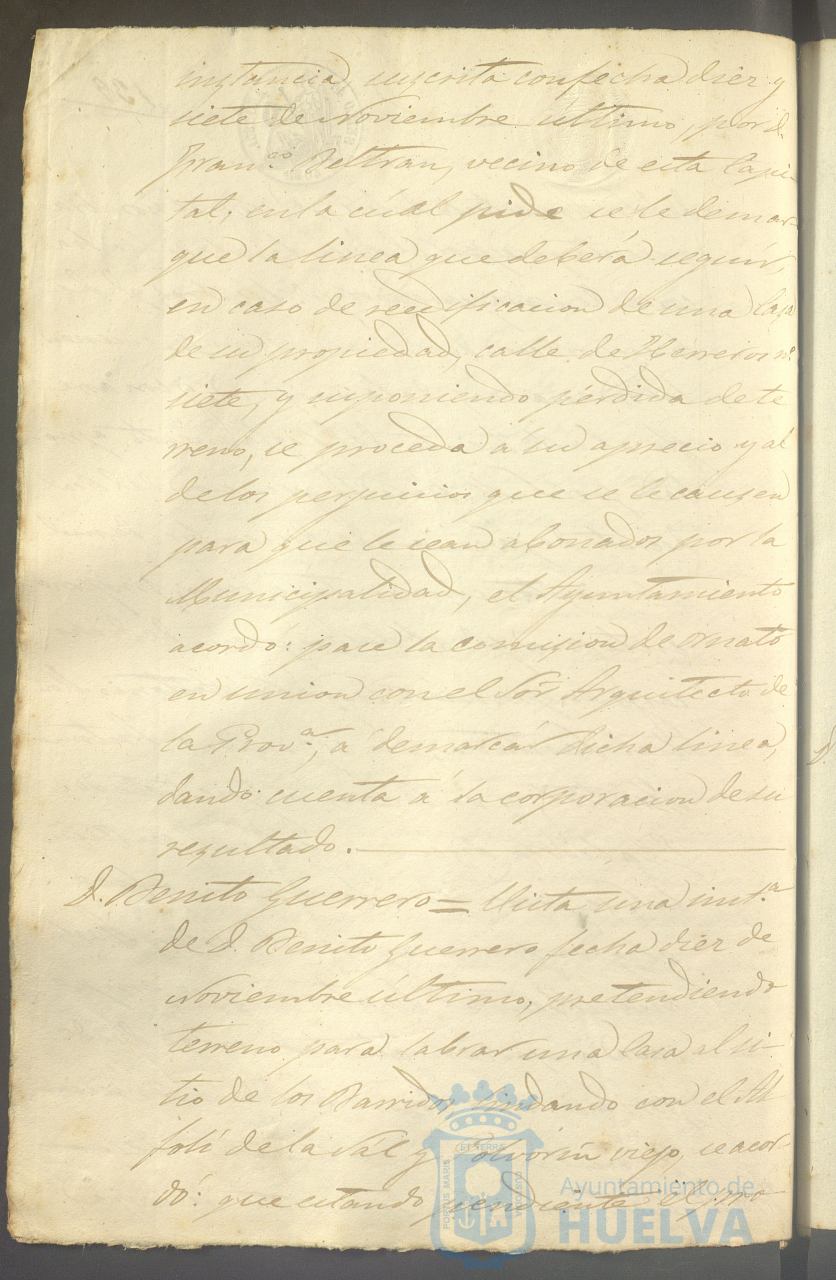 instancia suscrita con fecha diez y
siete de Noviembre ultimo, por D.
Fran.co Beltran, vecino de esta Capi-
tal, en la cuál pide se le demar-
que la linea que deberá seguir,
en caso de reedificacion de una Casa
de su propiedad, calle de Herreros n.º
siete, y suponiendo pérdida de te
rreno, se proceda á su aprecio y al
de los perjuicios que se le causen
para que le sean abonados por la
Municipalidad, el Ayuntamiento
acordó: pase la comision de ornato
en union con el Sor. Arquitecto de
la Prov.a, á demarcár dicha linea,
dando cuenta á la corporacion de su
resultado.
D. Benito Guerrero = Vista una inst.a
de D. Benito Guerrero fecha diez de
Noviembre último, pretendiendo
terreno para labrar una Casa al si-
tio de los Barridos, lindando con el Al
folí de la Sál y Polvorin viejo, se acor-
dó: que estando pendiente el pro
PORTUS MARIS ET TERRÆ CUSTODIA
Ayuntamiento de
HUELVA